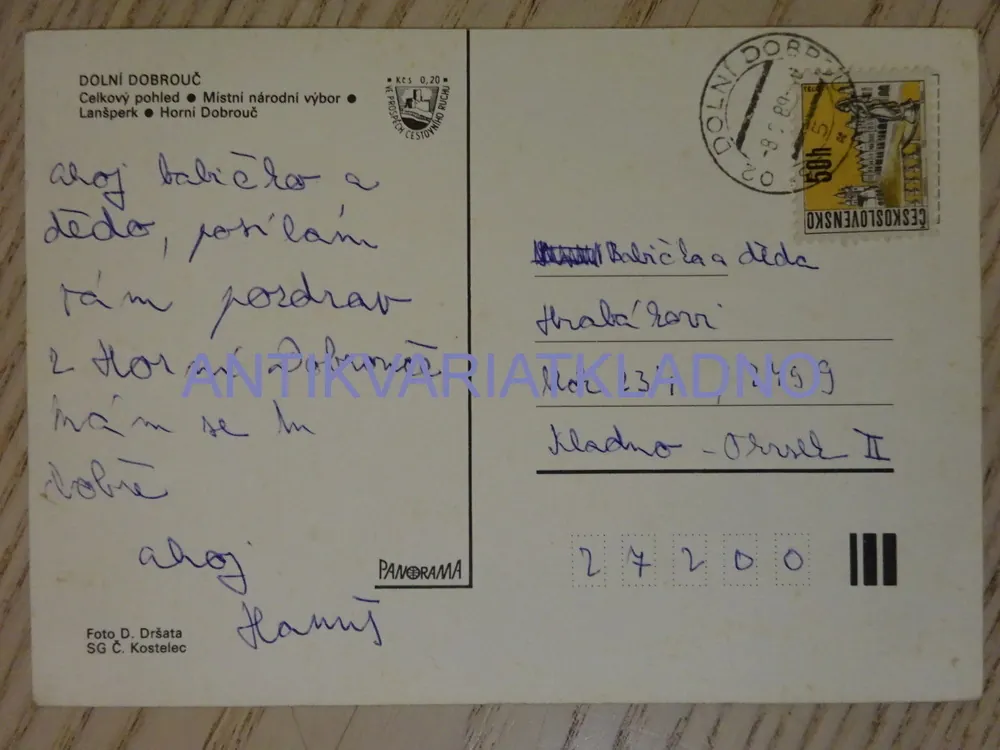 DOLNÍ DOBROUČ
Celkový pohled ● Místní národní výbor ●
Lanšperk ● Horní Dobrouč
Kčs 0,20
VE PROSPĚCH CESTOVNÍHO RUCHU
ahoj babičko a
dědo, posílám
vám pozdrav
z Horní Dobrouče
mám se tu
dobře
ahoj
Hanuš
Foto D. Dršata
SG Č. Kostelec
PANORAMA
DOLNÍ DOBR
50h
ČESKOSLOVENSKO
Babička a děda
Hrabákovi
2499
Kladno - II
27200
ANTIKVARIATKLADNO